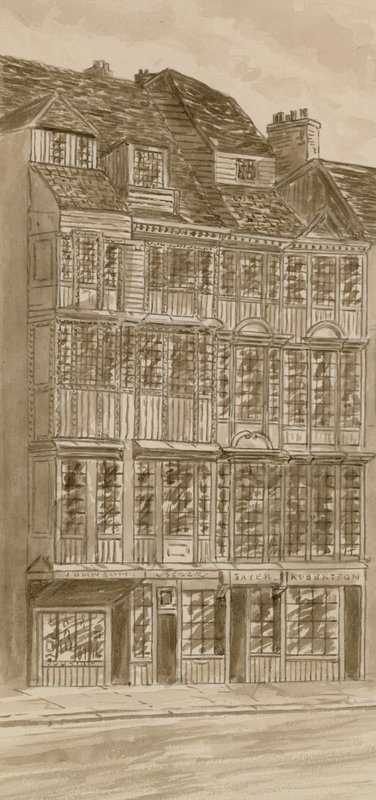 JOHNSON.
SAYER. ROBERTSON